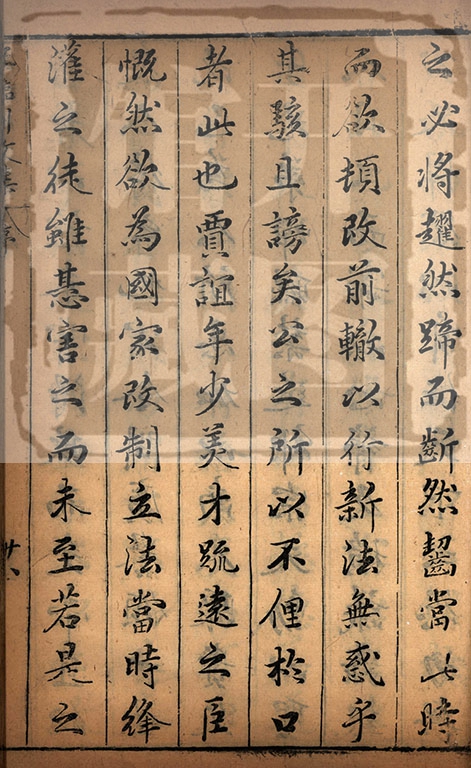 之必將趯然蹄而斷然齧當此時
而欲頓改前轍以行新法無惑乎
其駭且謗矣公之所以不俚於口
者此也賈誼年少美才疏遠之臣
慨然欲為國家改制立法當時絳
灌之徒雖惎害之而未至若是之